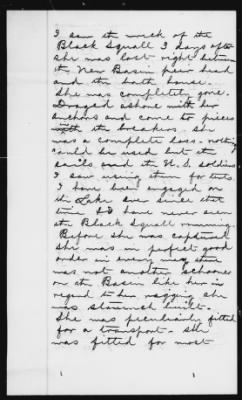 I saw the wreck of the
Black Squall 3 days after
she was lost right between
the New Basin pier head
and the bath house.
She was completely gone.
Draged ashore with her
anchors and come to pieces
with the breakers. She
was a complete loss. nothing
could be used but the
sails and the U. S. soldiers
I saw using them for tents.
I have been engaged on
the Lake ever since that
time & have never seen
the Black Squall running.
Before she was captured
she was in perfect good
order in every way there
was not another schooner
on the Basin like her in
regard to her rigging she
was staunch built.
She was peculiarly fitted
for a transport - She
was fitted for most